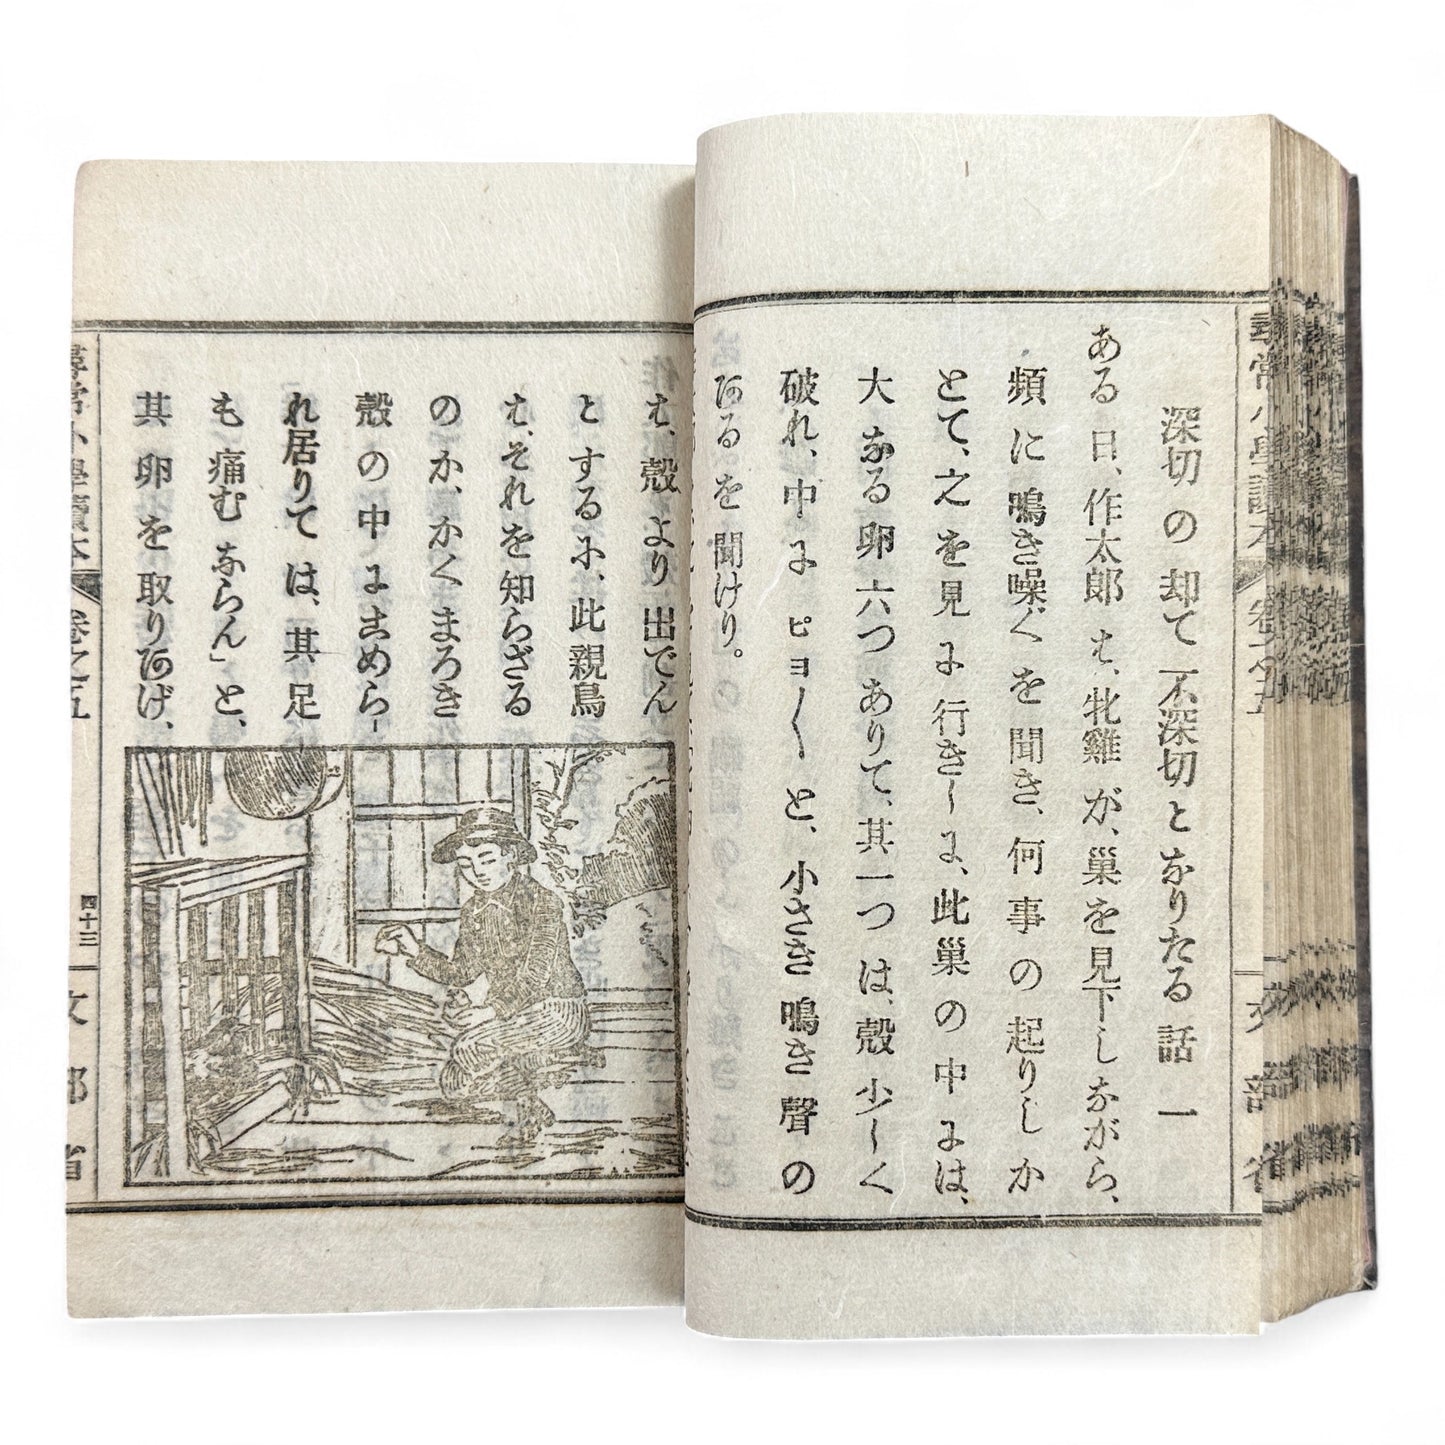 深切の却て不深切となりたる話 一
ある日、作太郎は、牝雞が、巣を見下しながら、
頻に鳴き噪ぐを聞き、何事の起りしか
とて、之を見に行きしに、此巣の中には、
大なる卵六つありて、其一つは、殻少しく
破れ、中にピヨ〳〵と、小さき鳴き聲の
あるを聞けり。
作
は、殻より出でん
とするに、此親鳥
は、それを知らざる
のか、かくまろき
殻の中にこめら
れ居りては、其足
も痛むならん」と、
其卵を取りあげ、
尋常小學讀本
卷之五
四十三
文部省